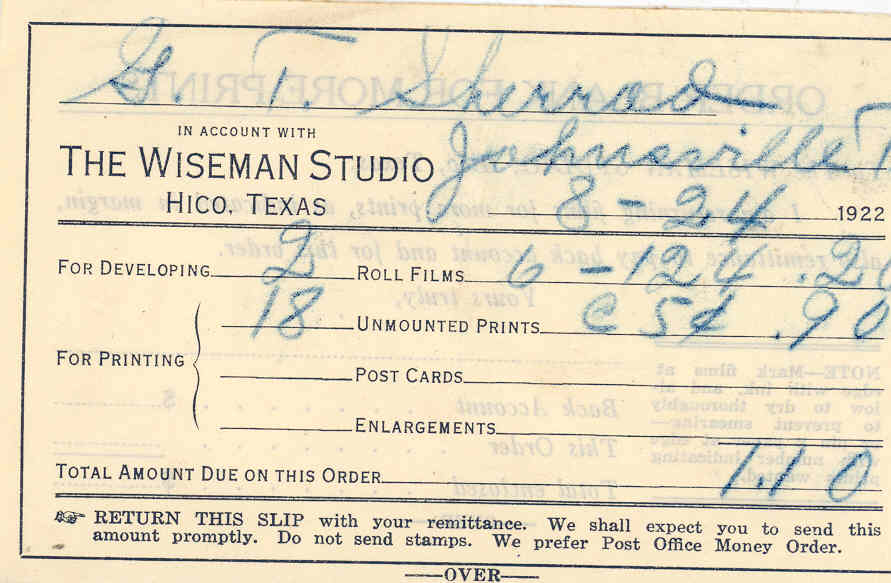 G. T. Sherrad
IN ACCOUNT WITH
THE WISEMAN STUDIO
Johnsville T
HICO, TEXAS
8-24 1922
FOR DEVELOPING 2 ROLL FILMS 6 - 12 4 .20
18 UNMOUNTED PRINTS @ 5¢ .90
FOR PRINTING
POST CARDS
ENLARGEMENTS
TOTAL AMOUNT DUE ON THIS ORDER 110
☞ RETURN THIS SLIP with your remittance. We shall expect you to send this
amount promptly. Do not send stamps. We prefer Post Office Money Order.
——OVER——